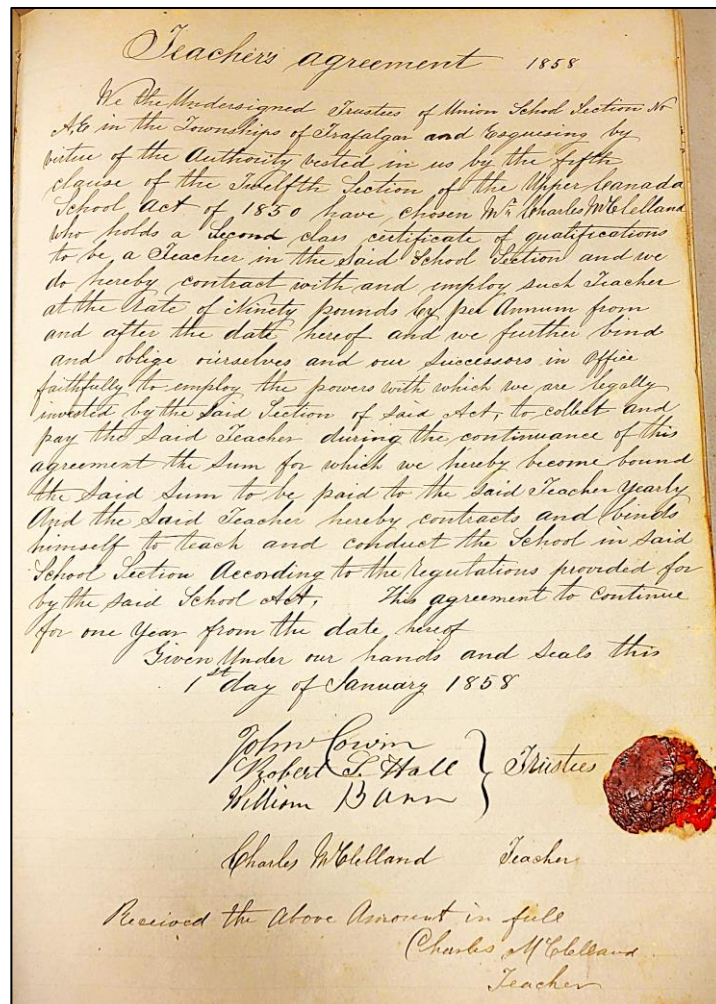 Teachers agreement 1858
We the Undersigned Trustees of Union School Section No
in the Townships of Trafalgar and Esquesing by
virtue of the Authority vested in us by the fifth
clause of the Twelfth Section of the Upper Canada
School Act of 1850 have chosen Mr Charles McClelland
who holds a Second class certificate of qualifications
to be a Teacher in the Said School Section and we
do hereby contract with and employ such Teacher
at the Rate of Ninety pounds by per Annum from
and after the date hereof and we further bind
and oblige ourselves and our Successors in Office
faithfully to employ the powers with which we are legally
invested by the Said Section of Said Act, to collect and
pay the Said Teacher during the continuance of this
agreement the Sum for which we hereby become bound
the Said Sum to be paid to the Said Teacher Yearly
And the Said Teacher hereby contracts and binds
himself to teach and conduct the School in Said
School Section According to the Regulations provided for
by the Said School Act, This agreement to continue
for one Year from the date hereof
Given Under our hands and Seals this
1st day of January 1858
John Cowin
Robert S. Hall } Trustees
William
Charles McClelland Teacher
Received the Above Amount in full
Charles McClelland
Teacher